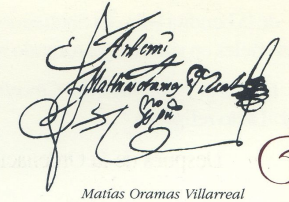 Ante mí
Mathias oramas Villareal
Matías Oramas Villarreal